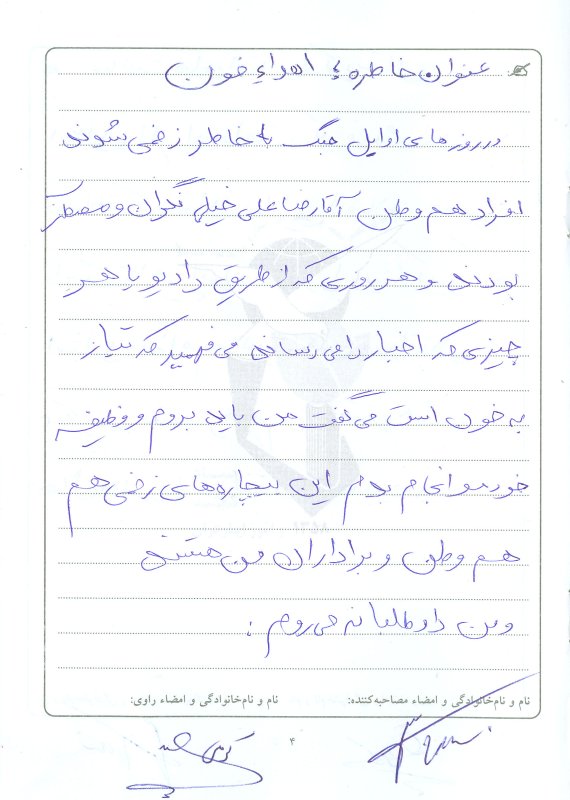 عنوان خاطره: اهداء خون
در روزهای اوایل جنگ با خاطر زخمی شوند
افراد هم وطن آقا رضا علی خیلی نگران و مضطر
بودند و هر روزی که از طریق رادیو یا هر
چیزی که اخبار را می رساند می فهمید که نیاز
به خون است می گفت من باید بروم و وظیفه
خودمو انجام بدم این بیچاره های زخمی هم
هم وطن و براداران من هستند
و من داوطلبانه می روم:
نام و نام‌خانوادگی و امضاء مصاحبه‌کننده: نام و نام‌خانوادگی و امضاء راوی:
۴